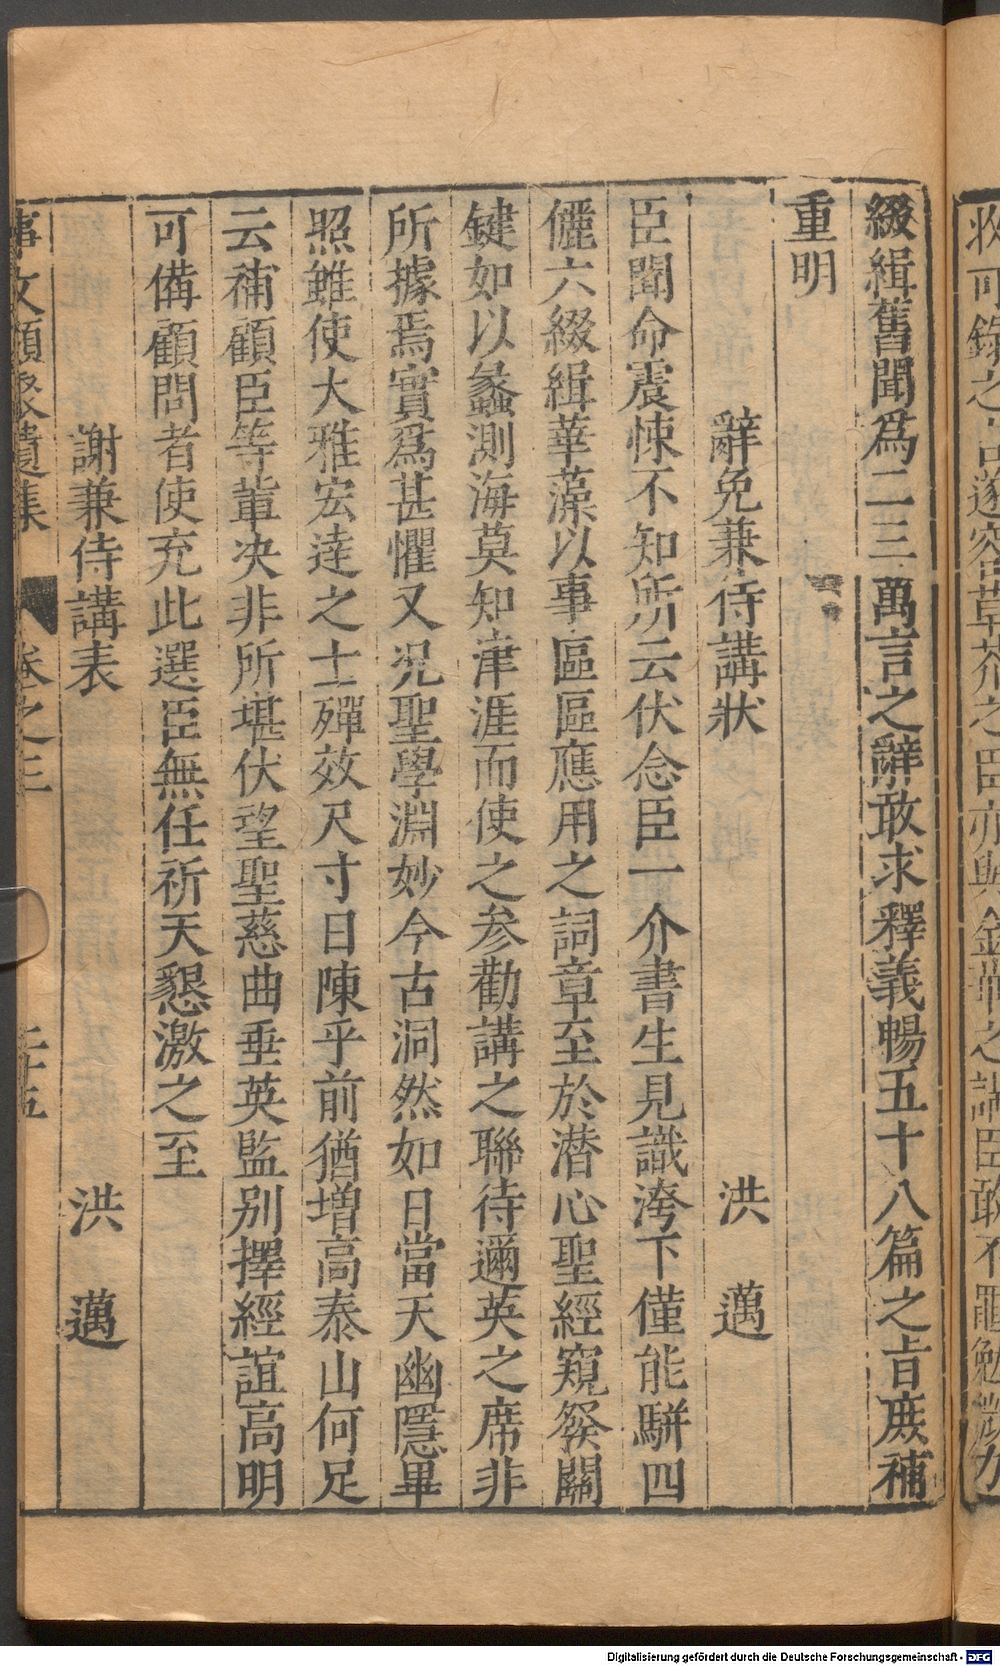 綴緝舊聞爲二三萬言之辭敢求釋義暢五十八篇之旨庻補
重明
辭免兼侍講狀 洪 邁
臣聞命震悚不知所云伏念臣一介書生見識洿下僅能駢四
儷六綴緝華藻以事區區應用之詞章至於潜心聖經窺㷀關
鍵如以蠡測海莫知津涯而使之参勸講之聯待邇英之席非
所據焉實爲甚懼又况聖學淵妙今古洞然如日當天幽隱畢
照雖使大雅宏逹之士殫效尺寸日陳乎前猶増高泰山何足
云補顧臣等軰决非所堪伏望聖慈曲垂英監別擇經誼高明
可備顧問者使充此選臣無任祈天懇激之至
謝兼侍講表 洪 邁
事文類聚遺集 卷之三
Digitalisierung gefördert durch die Deutsche Forschungsgemeinschaft - DFG